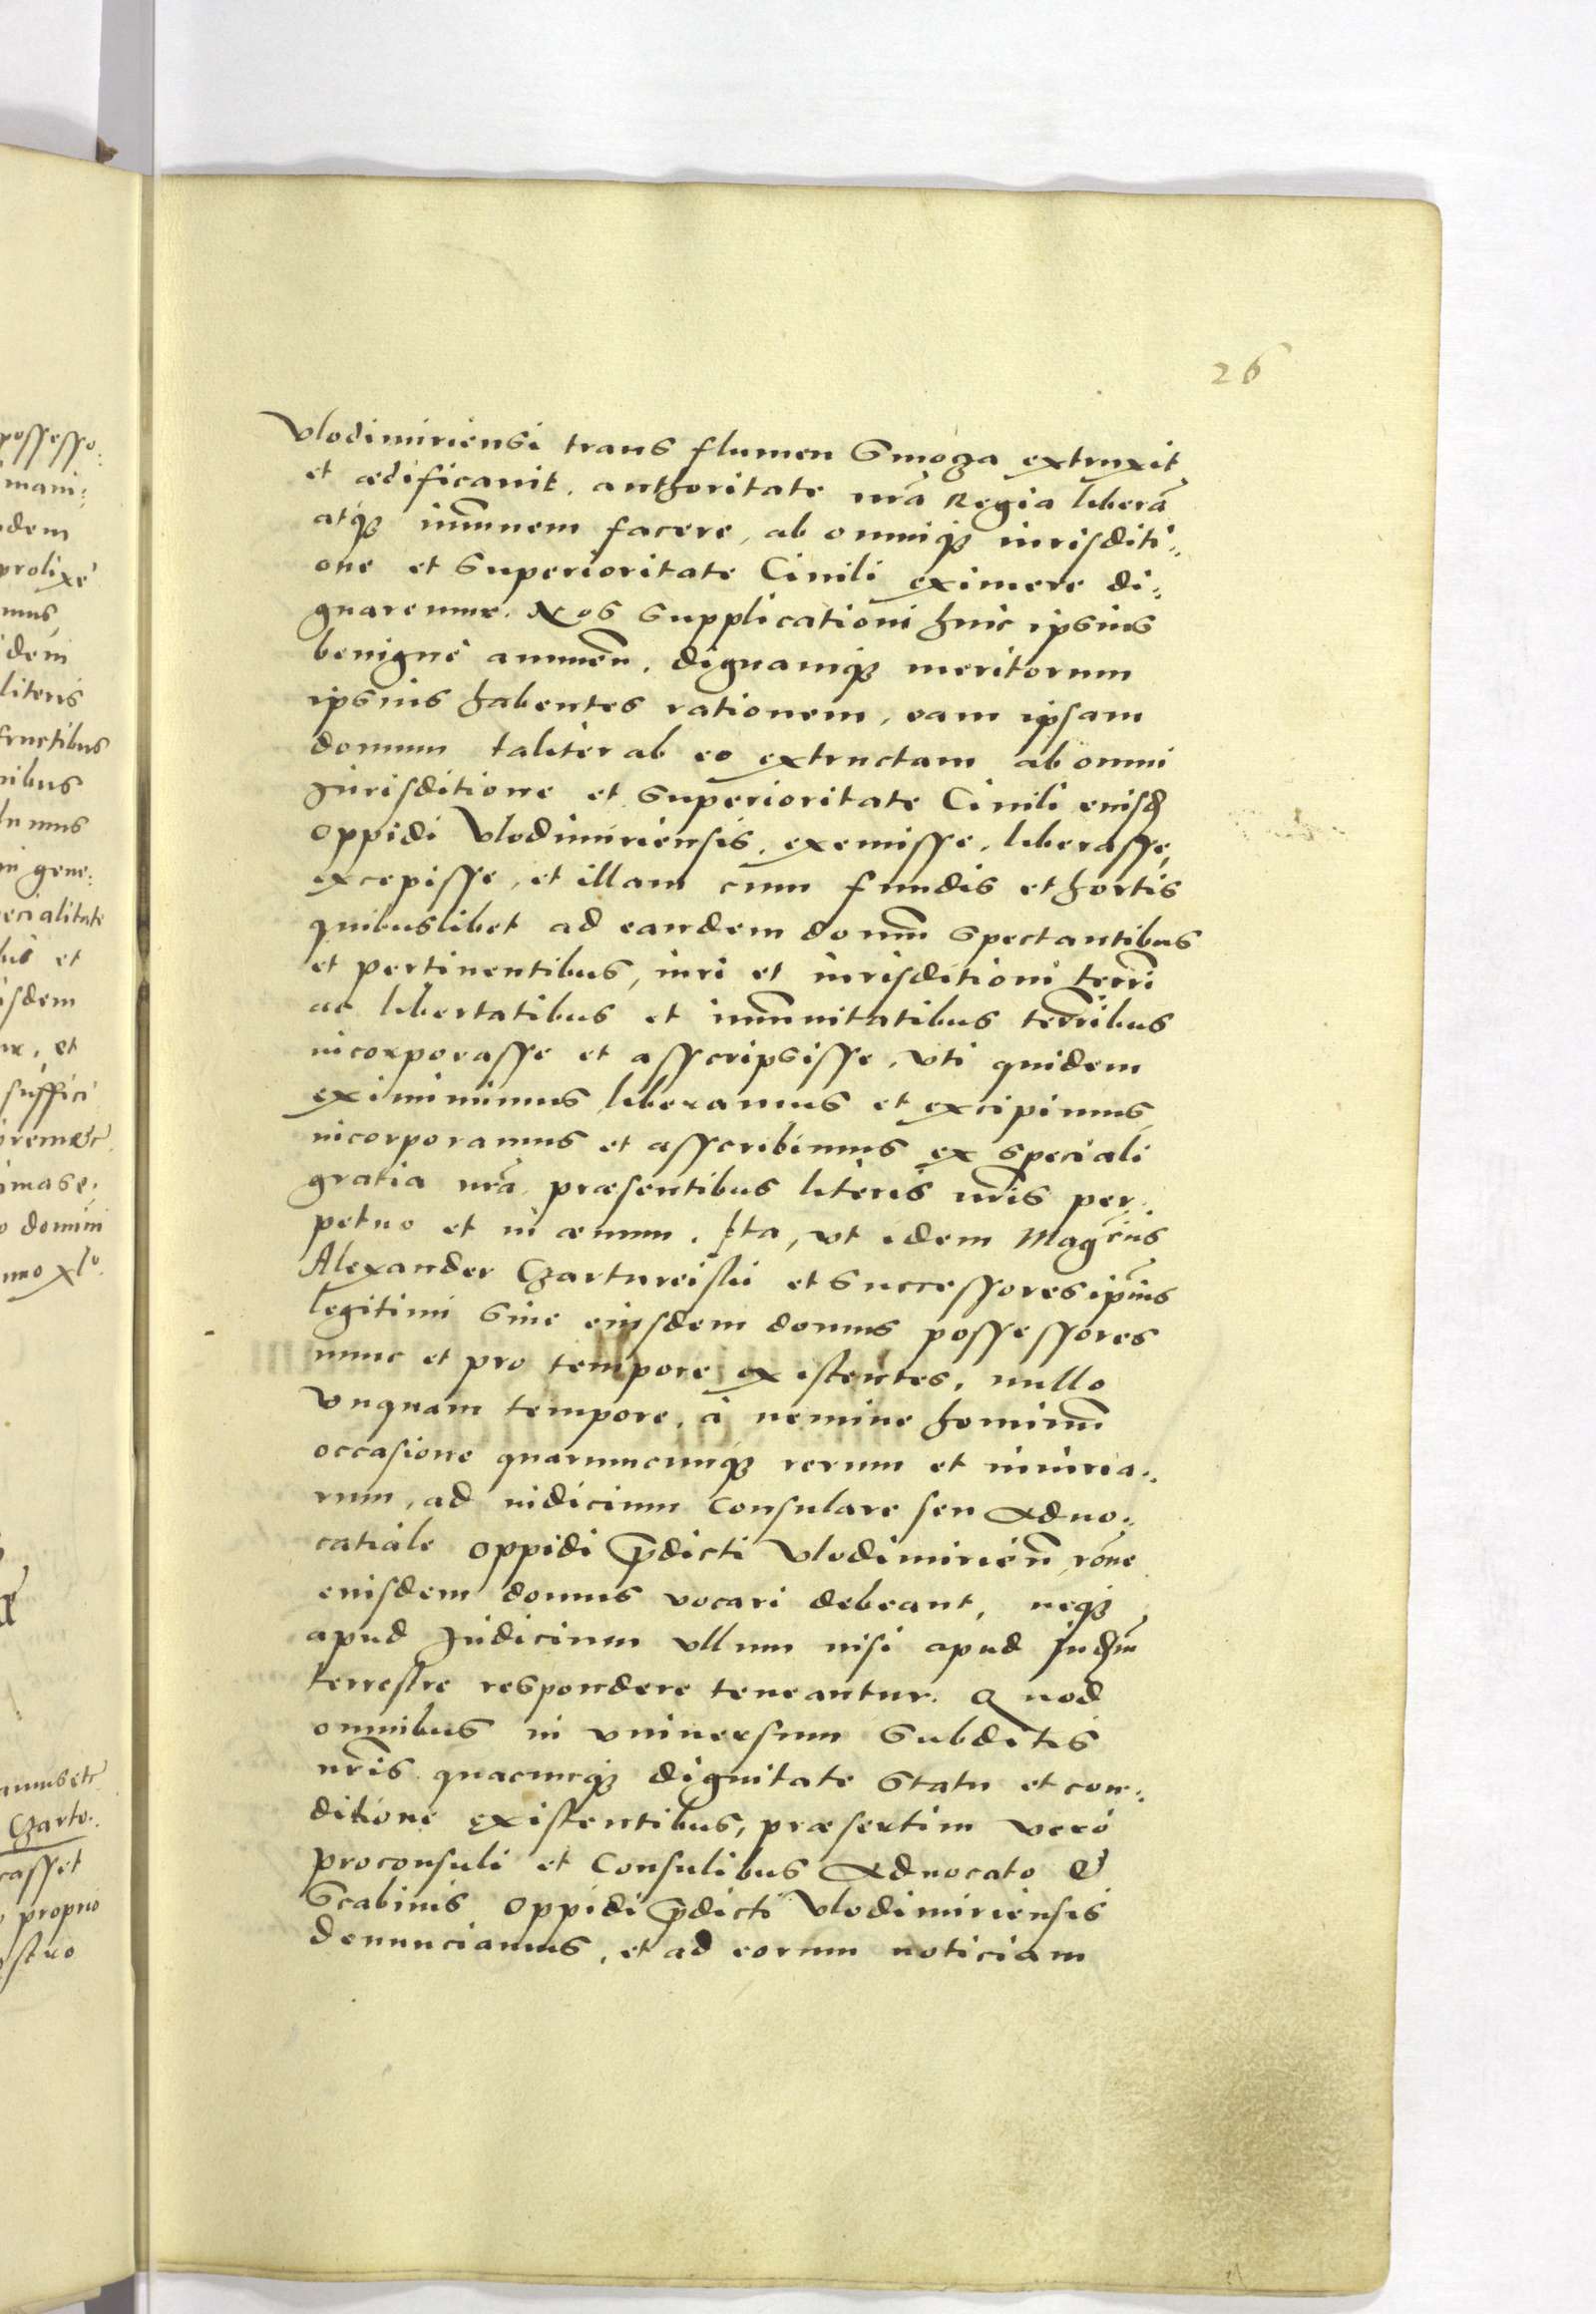 26
Vlodimiriensi trans flumen Smoga extruxit
et ædificauit, authoritate nrã Regia liberã
atq̃ imũnem facere, ab omniq̃ iurisditi„
one et Superioritate Ciuili eximere di„
gnaremur. Nos supplicationi huic ipsius
benigne annueñ. dignamq̃ meritorum
ipsius habentes rationem, eam ipsam
domum taliter ab eo extructam ab omni
Jurisditione et Superioritate Ciuili eiusd
oppidi Vlodimiriensis, exemisse, liberasse,
excepisse, et illam cum fundis et hortis
quibuslibet ad eandem domũ spectantibus
et pertinentibus, iuri et iurisditioni terrĩ
ac libertatibus et imũnitatibus terrĩbus
incorporasse et asscripsisse. Vti quidem
eximimus liberamus et excipimus,
incorporamus et asscribimus ex speciali
gratia nrã præsentibus literis nrĩs per„
petuo et in æuum. Ita, vt idem Magcũs
Alexander Czartoreiski et Successores ipĩus
legitimi Siue eiusdem domus possessores
nunc et pro tempore existentes, nullo
vnquam tempore, à nemine hominũ
occasione quarumcumq̃ rerum et iniuria„
rum, ad iudicium Consulare seu Aduo„
catiale oppidi p̃dicti Vlodimirieñ rõne
eiusdem domus vocari debeant, neq̃
apud Judicium vllum nisi apud Judm̃
terrestre respondere teneantur. Quod
omnibus in vniuersum Subditis
nrĩs quacumq̃ dignitate Statu et con„
ditione existentibus, præsertim verò
proconsuli et Consulibus Aduocato &
Scabinis oppidi p̃dicti Vlodimiriensis
denunciamus, et ad eorum noticiam
possesso:
mani:
dem
prolixè
mus,
idem
literis
fructibus
nibus
lumus
in gene:
ecialitate
bus et
isdem
et
suffici
domini
mo xlo
Czarto:
casset
proprio